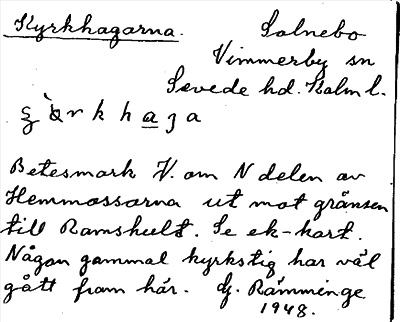 Kyrkhagarna. Solnebo
Vimmerby sn
Sevede hd. Kalm l.
Betesmark V. om N delen av
Hemmossarna ut mot gränsen
till Ramshult. Se ek-kart.
Någon gammal kyrkstig har väl
gått fram här. G. Rämminge
1948.